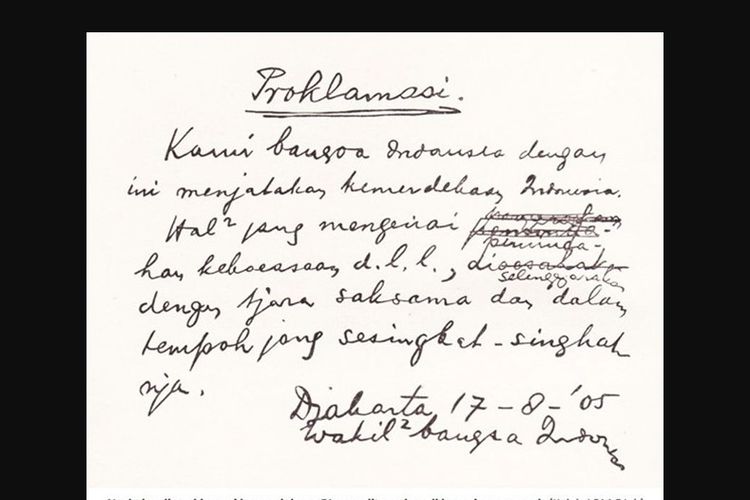 Proklamasi.
Kami bangsa Indonesia dengan
ini menjatakan kemerdekaan Indonesia.
Hal² jang mengenai
peminda-
han keboeasaan d.l.l., dioesahakan
selenggarakan
dengan tjara saksama dan dalam
tempoh jang sesingkat-singkat
nja.
Djakarta 17-8-'05
Wakil² bangsa Indonesia